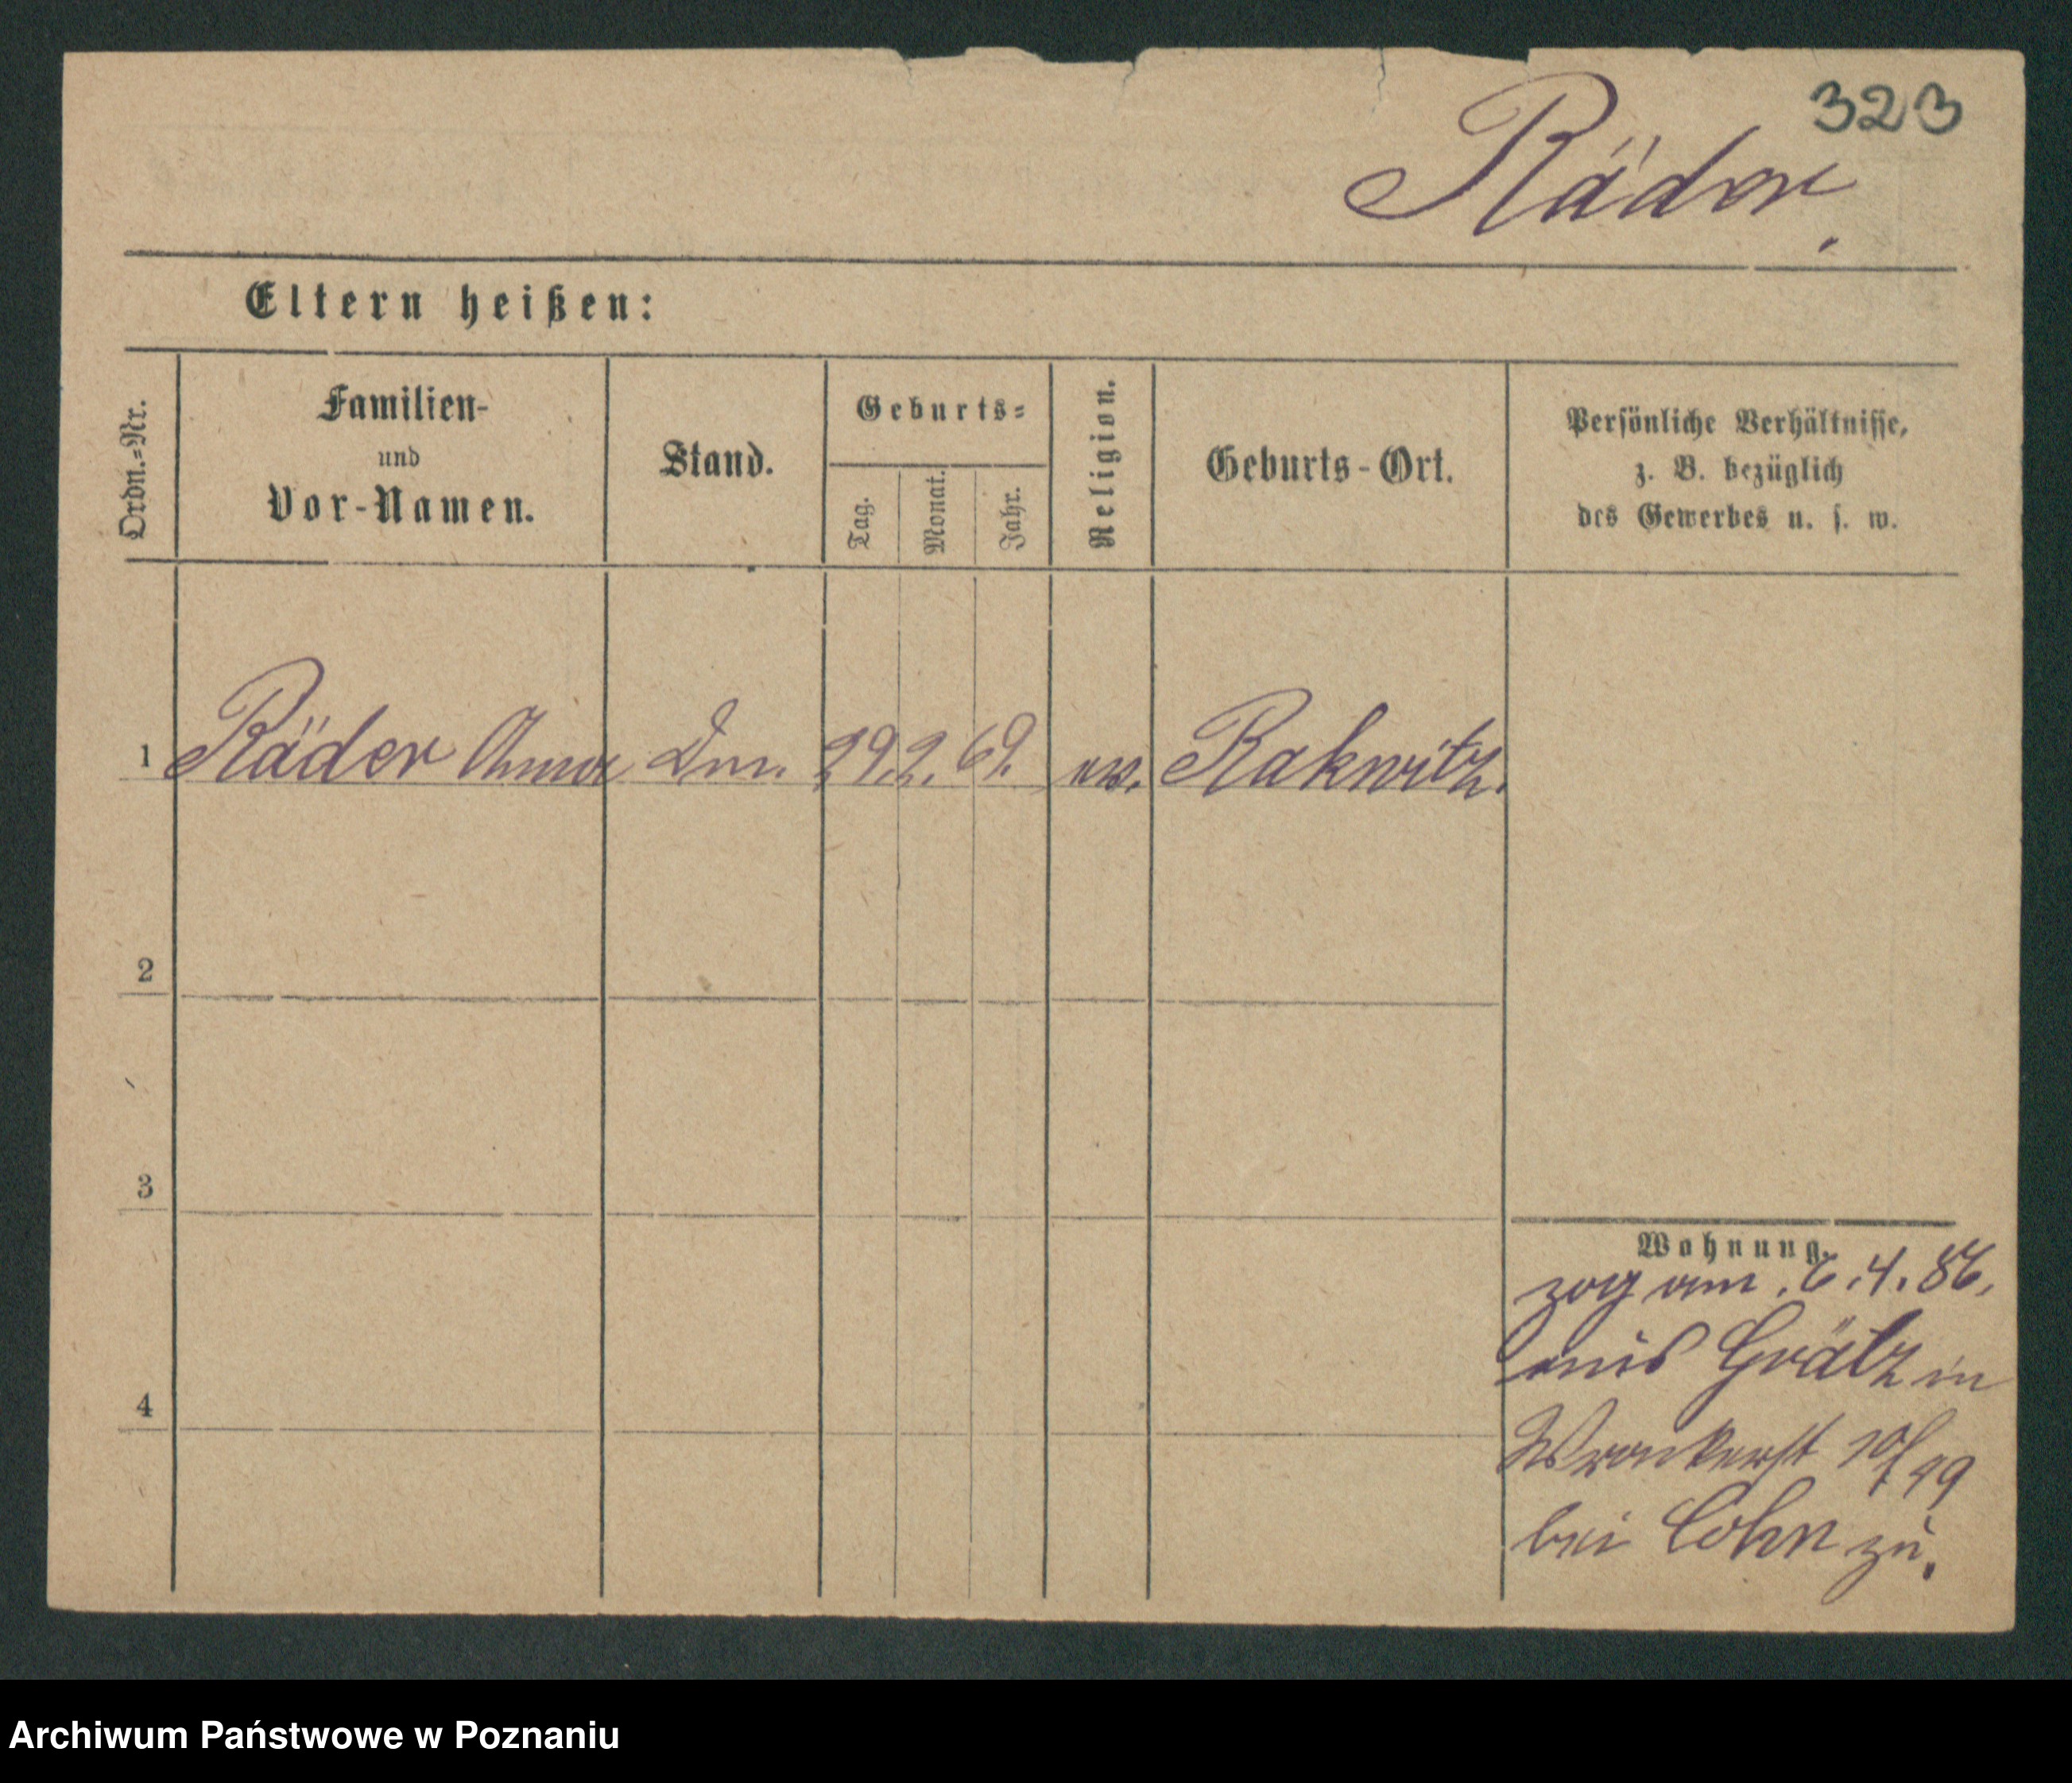 323
Räder.
Eltern heißen:
Ordn.-Nr.
Familien-
und
Vor-Namen.
Stand.
Geburts-
Tag.
Monat.
Jahr.
Religion.
Geburts-Ort.
Persönliche Verhältnisse,
z. B. bezüglich
des Gewerbes u. s. w.
1 Räder Anna 29. 2. 69. ev. Rakwitz.
2
3
4
Wohnung.
zog am 6.4.86.
aus Grätz in
Wronkerst
bei Cohn zu.
Archiwum Państwowe w Poznaniu